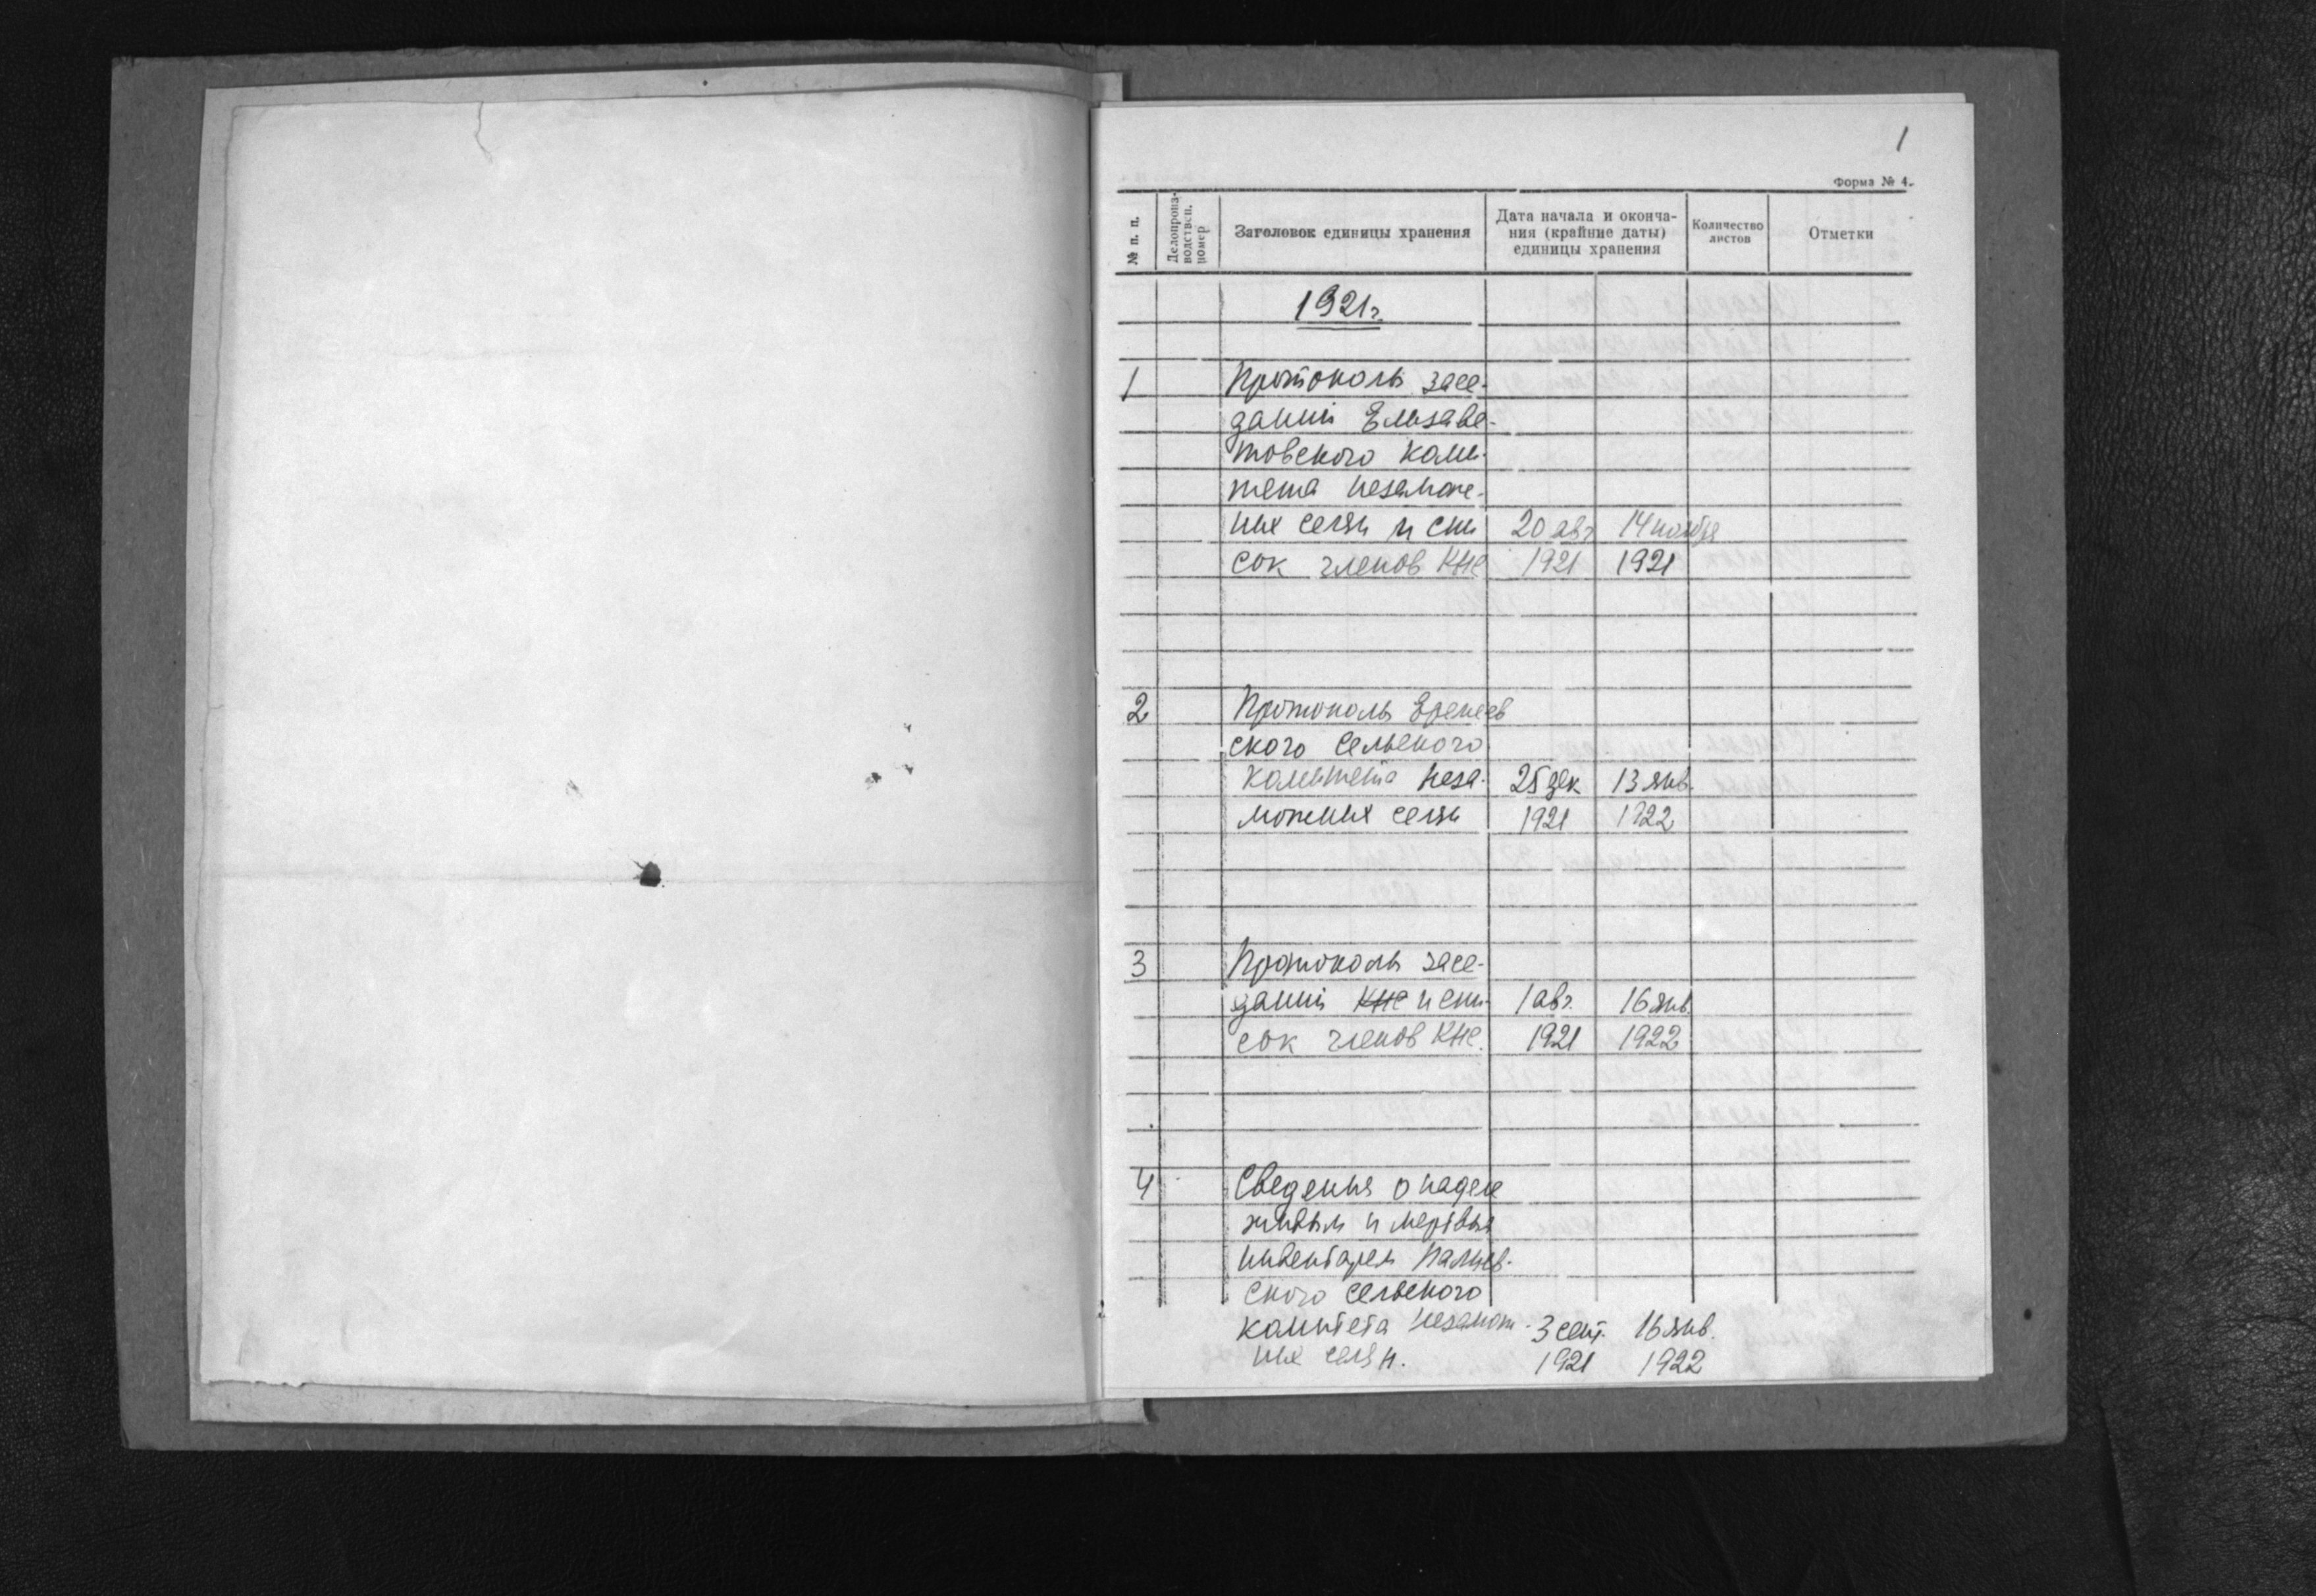 1
Форма № 4.
№ п. п.
Делопроиз-
водствен.
номер
Заголовок единицы хранения
Дата начала и оконча-
ния (крайние даты)
единицы хранения
Количество
листов
Отметки
1921г.
1 Протоколы засе-
даний Елизаве-
товского коми-
тета незамож-
них селян и спи
сок членов КНС
20 авг 14 ноября
1921 1921
2 Протоколы
ского сельского
комитета неза-
можних селян
25 дек 13 янв.
1921 1922
3 Протоколы засе-
даний КНС и спи-
сок членов КНС.
1 авг. 16 янв.
1921 1922
4 Сведения о наделе
живым и мертвым
инвентарем
ского сельского
комитета незамож-
них селян.
3 сент. 16 янв.
1921 1922